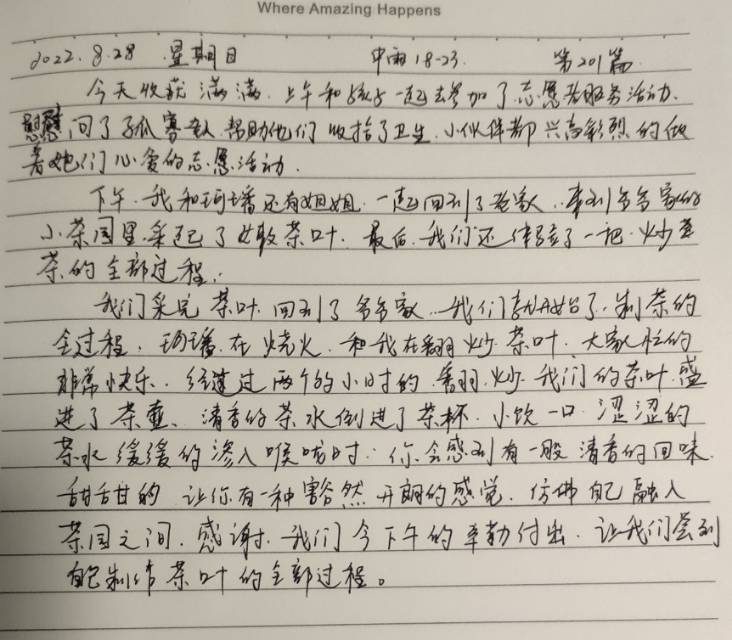 Where Amazing Happens
2022.8.28 星期日 中雨18-23 第201篇
今天收获满满.上午和孩子一起去参加了志愿者服务活动.
慰问了孤寡老人.帮助他们收拾了卫生.小伙伴都兴高彩烈的做
着她们心爱的志愿活动.
下午.我和珂璠还有姐姐.一起回到了老家..来到爷爷家的
小茶园里.采起了嫩茶叶.最后.我们还体验了一把.炒
茶的全部过程.
我们采完茶叶.回到了爷爷家..我们就开始了.制茶的
全过程.珂璠.在烧火.和我在翻炒.茶叶.大家忙的
非常快乐.经过两个的小时的.翻.炒.我们的茶叶.盛
进了茶壶、清香的茶水倒进了茶杯.小饮一口.涩涩的
茶水缓缓的渗入喉咙时.你会感到有一股清香的回味.
甜甜的 让你有一种豁然开朗的感觉.仿佛自己融入
茶园之间.感谢.我们今下午的辛勤付出.让我们尝到
自己制作茶叶的全部过程。